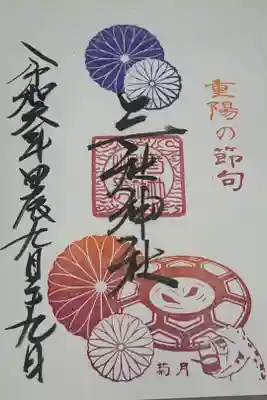 重陽の節句
神社
令和六年甲辰九月二十九日
菊月